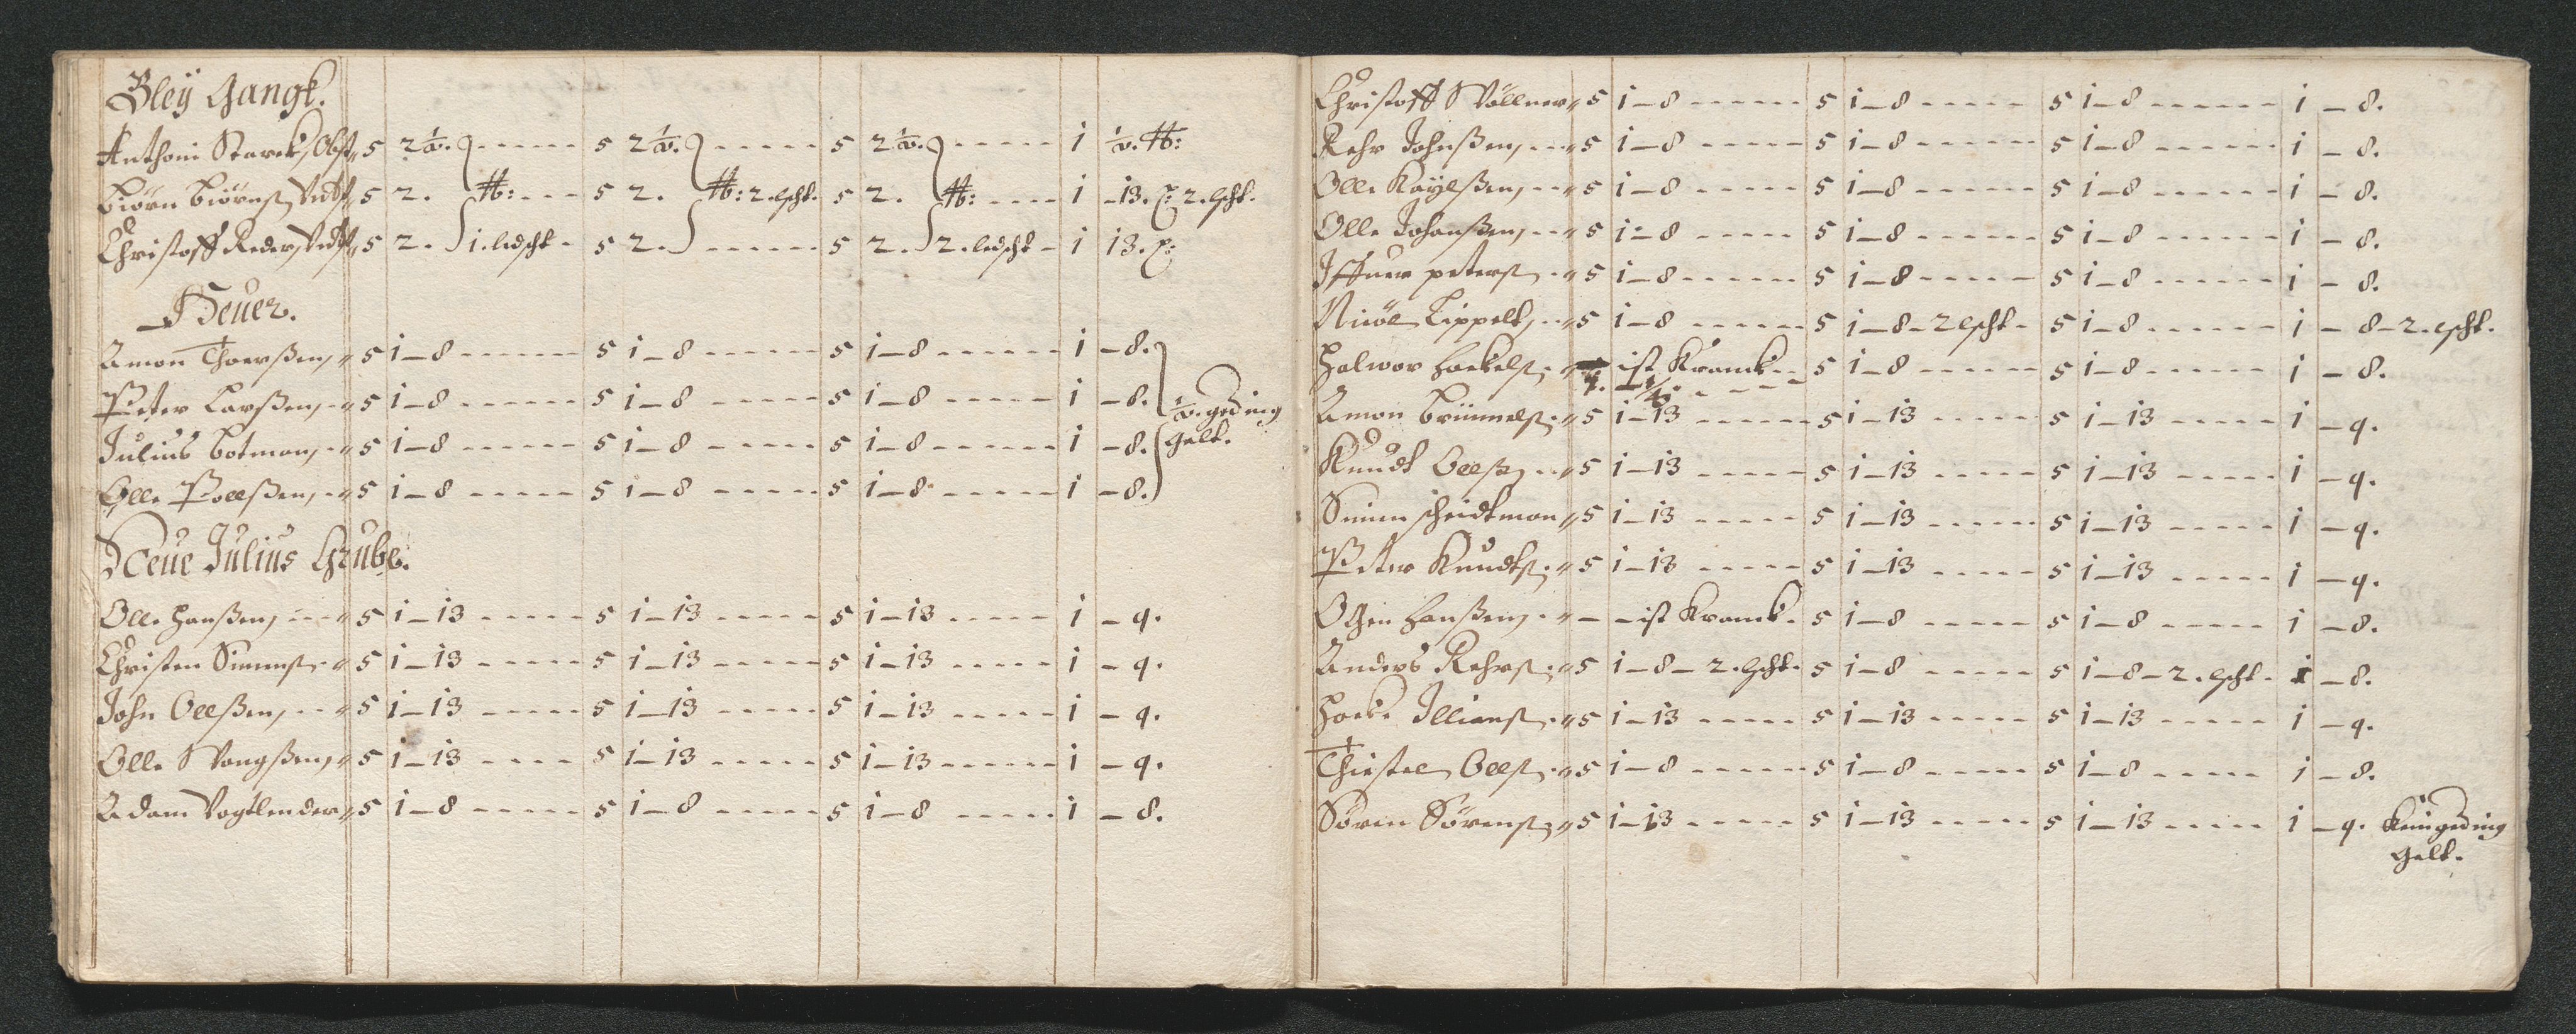 Bleÿ Gangk.
Anthoni Starck, Obst 5 2½. ----- 5 2½. ----- 5 2½. ----- 1 ½.
Biörn Biörnß, Vnd 5 2. --- 5 2. 2. lscht. 5 2. ---- 1 -13. 2. lscht.
Christoff Reder, Vnd 5 2. 1. ledscht - 5 2. ------ 5 2. 2. ledscht - 1 13.
Heuer.
Amon Thorßen, 5 1-8 ------ 5 1-8 ----- 5 1-8 ------ 1 -8.
Peter Larßen, 5 1-8 ------ 5 1-8 ----- 5 1-8 ------ 1 -8. ½. geding
Julius Botman, 5 1-8 ------ 5 1-8 ----- 5 1-8 ------ 1 -8. gelt.
Olle Poelßen, 5 1-8 ----- 5 1-8 ----- 5 1-8 ----- 1 -8.
Neue Julius Grube.
Olle Hanßen, --- 5 1-13 ----- 5 1-13 ----- 5 1-13 ----- 1 -9.
Christen Simenß 5 1-13 ----- 5 1-13 ----- 5 1-13 ----- 1 -9.
John Oelßen, -- 5 1-13 ----- 5 1-13 ----- 5 1-13 ----- 1 -9.
Olle 5 1-13 ---- 5 1-13 ----- 5 1-13 ------ 1 -9.
Adam Vogtlender 5 1-8 ----- 5 1-8 ----- 5 1-8 ----- 1 -8.
Christoff Völlner 5 1-8 ------ 5 1-8 ----- 5 1-8 ------ 1 -8.
Rehr Johnßen, --- 5 1-8 ----- 5 1-8 ----- 5 1-8 ------ 1 -8.
Olle Kaÿelßen, -- 5 1-8 ----- 5 1-8 ------ 5 1-8 ------ 1 -8.
Olle Johanßen, -- 5 1-8 ----- 5 1-8 ------ 5 1-8 ------ 1 -8.
Iffuer peterß 5 1-8 ------ 5 1-8 ----- 5 1-8 ------ 1 -8.
Nicol Lippelt, -- 5 1-8 ------ 5 1-8-2 lscht - 5 1-8 ------ 1 -8-2. lscht.
Halwor ist Kranck -- 5 1-8 ------ 5 1-8 ------ 1 -8.
Amon 5 1-13 ------ 5 1-13 ----- 5 1-13 ----- 1 -9.
Knudt Oelß 5 1-13 ----- 5 1-13 ----- 5 1-13 ----- 1 -9.
Simen scheidtman 5 1-13 ----- 5 1-13 ------ 5 1-13 ----- 1 -9.
Peter Knudtß 5 1-13 ----- 5 1-13 ----- 5 1-13 ----- 1 -9.
Hanßen -- ist Kranck. 5 1-8 ----- 5 1-8 ----- 1 -8.
Anders Rehrß 5 1-8-2. lscht. 5 1-8 ----- 5 1-8-2. lscht. 1 -8.
5 1-13 ----- 5 1-13 ----- 5 1-13 ----- 1 -9.
Thostel Oelß 5 1-8 ------ 5 1-8 ----- 5 1-8 ----- 1 -8.
Sören Sörenß 5 1-13 ----- 5 1-13 ----- 5 1-13 ----- 1 -9. Kein geding
gelt.